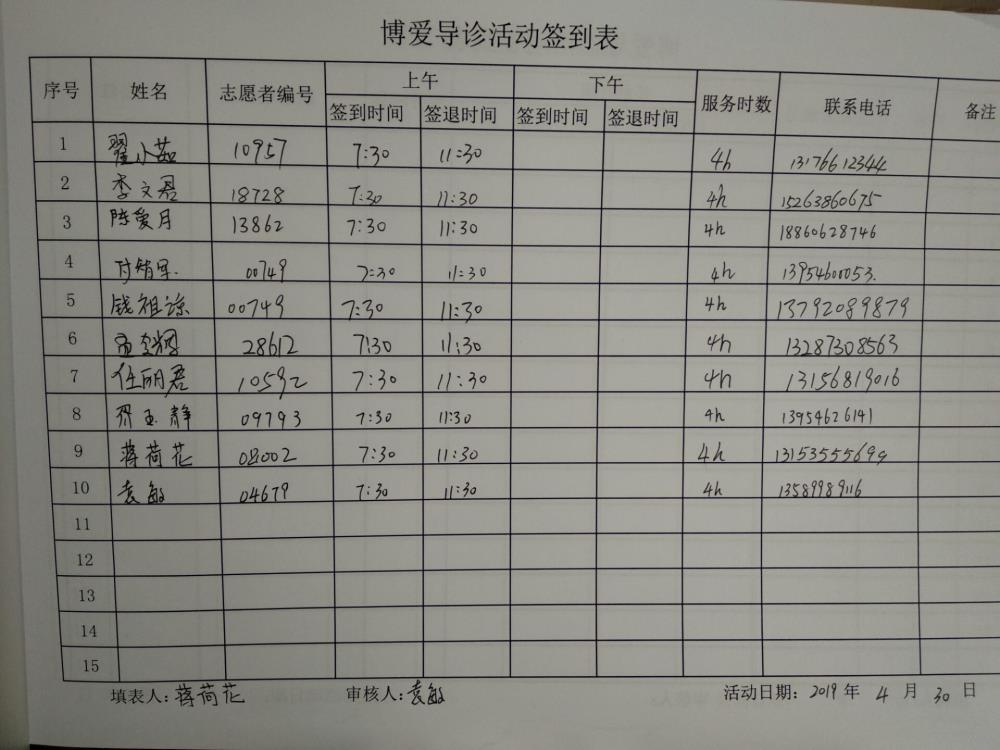 博爱导诊活动签到表
序号 姓名 志愿者编号 上午 下午 服务时数 联系电话 备注
签到时间 签退时间 签到时间 签退时间
1 翟小茹 10957 7:30 11:30 4h 13176612344
2 李文君 18728 7:30 11:30 4h 15263860675
3 陈爱月 13862 7:30 11:30 4h 18860628746
4 00749 7:30 11:30 4h 13954600053.
5 钱祖琼 00749 7:30 11:30 4h 13792089879
6 28612 7:30 11:30 4h 13287308563
7 任丽君 10592 7:30 11:30 4h 13156819016
8 玉静 09793 7:30 11:30 4h 13954626141
9 蒋荷花 08002 7:30 11:30 4h 13153555699
10 袁敏 04679 7:30 11:30 4h 13589989116
11
12
13
14
15
填表人:蒋荷花 审核人:袁敏 活动日期:2019年4月30日